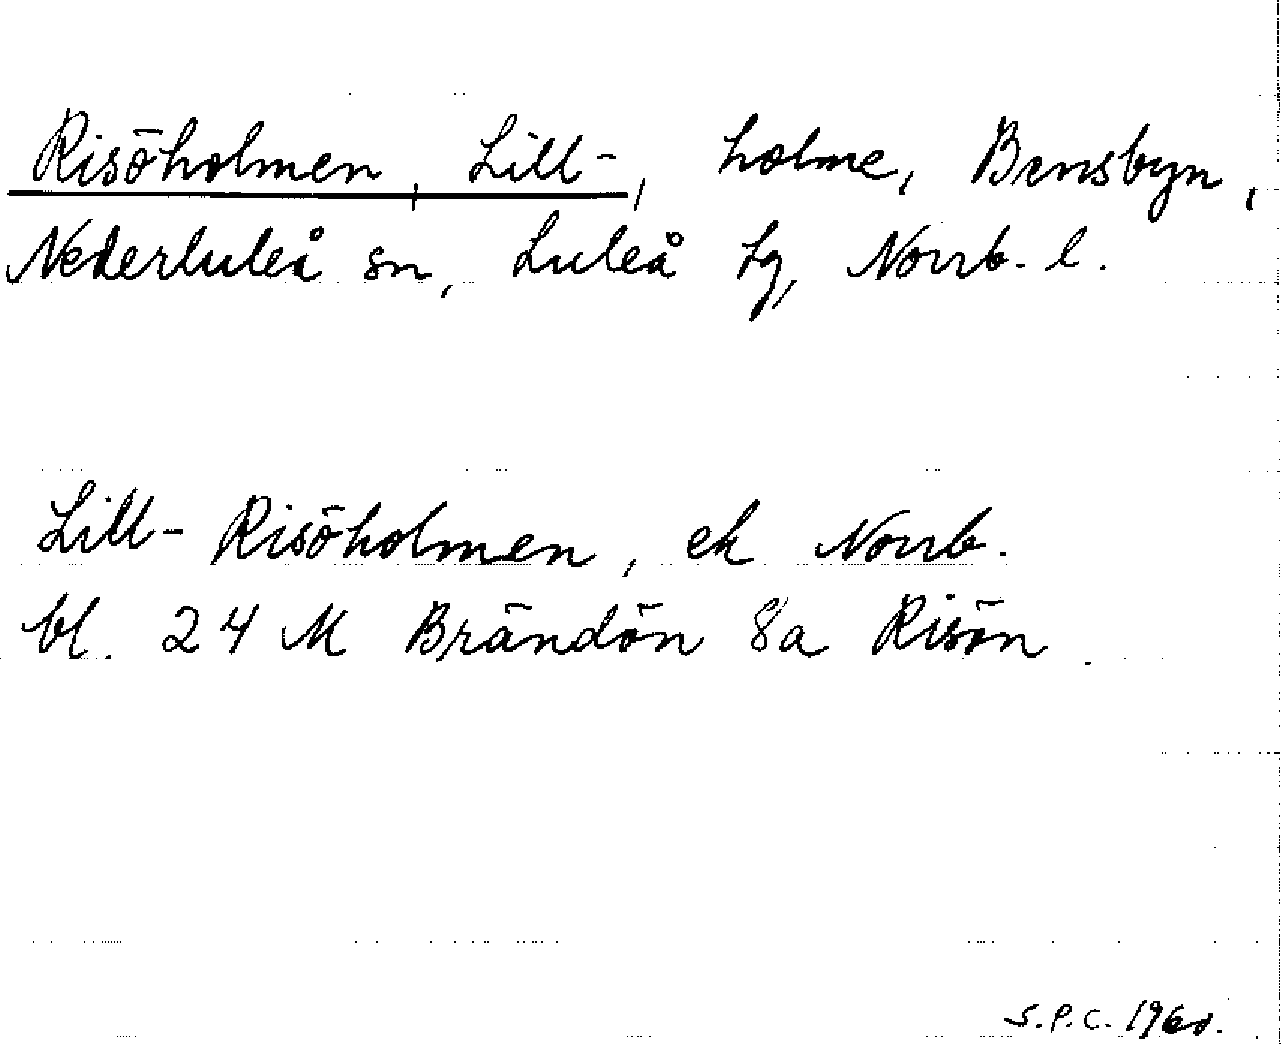 Risöholmen, Lill-, holme, Bensbyn,
Nederluleå sn, Luleå tg, Norrb. l.
Lill-Risöholmen, ek Norrb.
bl. 24 M Brändön 8a Risön.
S.P.C. 1960.